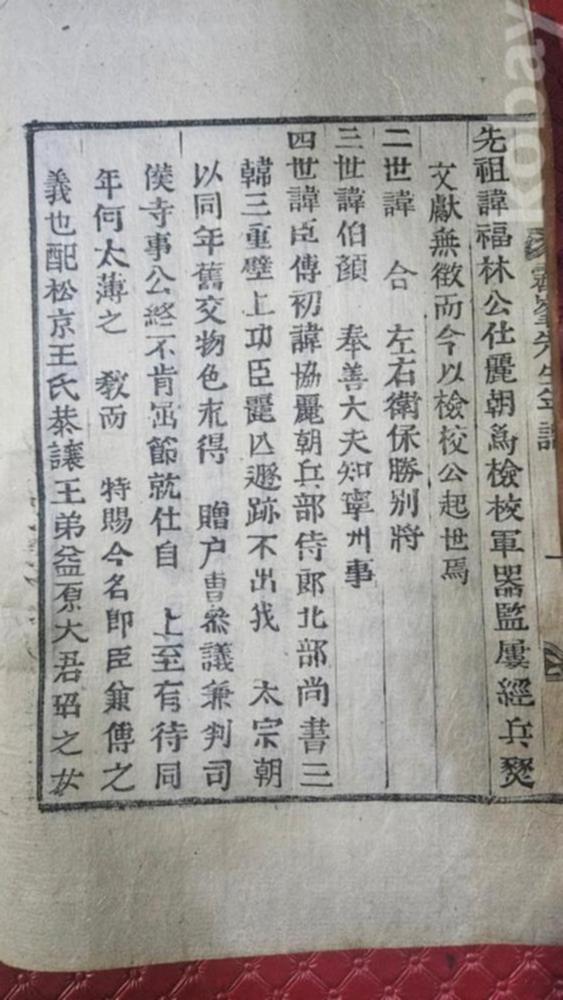 先祖諱福林公仕麗朝爲檢校軍器監屢經兵燹
文獻無徵而今以檢校公起世焉
二世諱 合 左右衛保勝別將
三世諱伯顔 奉善大夫知寧州事
四世諱臣傳初諱協麗朝兵部侍郎北部尚書三
韓三重壁上功臣麗亡遯跡不出我 太宗朝
以同年舊交物色求得 贈户曹叅議兼判司
僕寺事公終不肯屈節就仕自 上至有待同
年何太薄之 敎而 特賜今名卽臣兼傅之
義也配松京王氏恭讓王弟益原大君昭之女
先生年譜
一
kobay